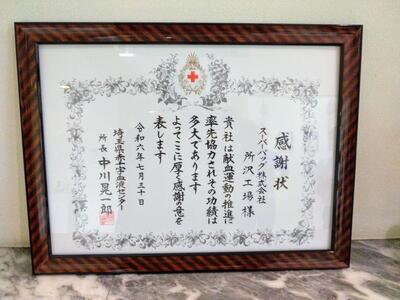 感謝状
スーパーバッグ株式会社
所沢工場様
貴社は献血運動の推進に
率先協力されその功績は
多大であります
よってここに厚く感謝の意を
表します
令和六年七月三十日
埼玉県赤十字血液センター
所長 中川晃一郎